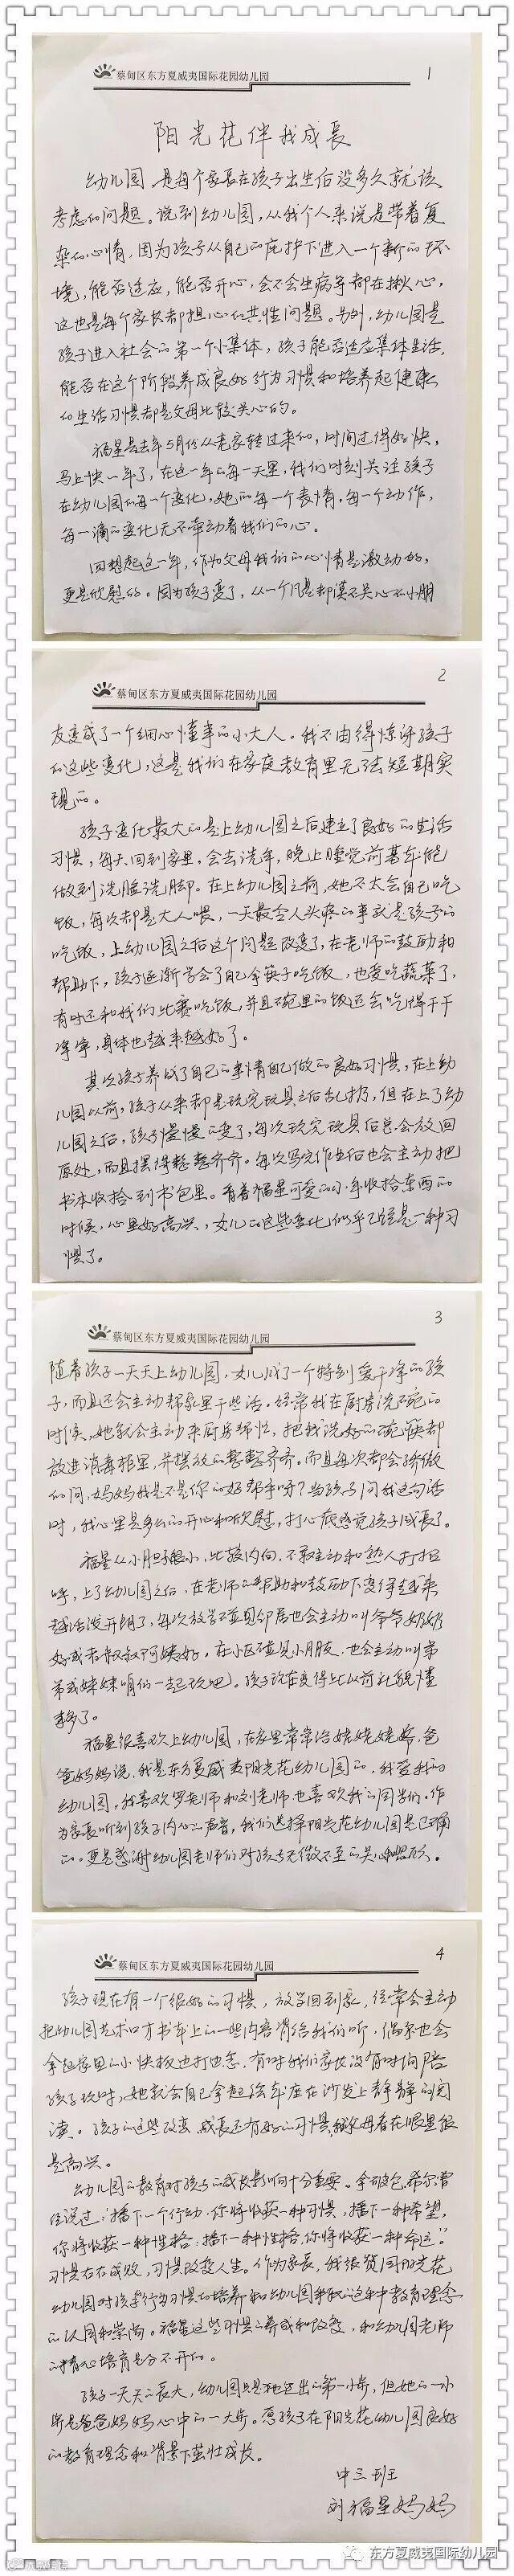 蔡甸区东方夏威夷国际花园幼儿园
1
阳光花伴我成长
幼儿园，是每个家长在孩子出生后没多久就该
考虑的问题。说到幼儿园，从我个人来说是带着复
杂的心情，因为孩子从自己的庇护下进入一个新的环
境，能否适应，能否开心，会不会生病等都在揪心，
这也是每个家长都担心的共性问题。另外，幼儿园是
孩子进入社会的第一个小集体，孩子能否适应集体生活，
能否在这个阶段养成良好行为习惯和培养起健康
的生活习惯都是父母比较关心的。
福星是去年5月份从老家转过来的，时间过得好快，
马上快一年了，在这一年的每一天里，我们时刻关注孩子
在幼儿园的每一个变化，她的每一个表情，每一个动作，
每一滴的变化无不牵动着我们的心。
回想起这一年，作为父母我们的心情是激动的，
更是欣慰的。因为孩子变了，从一个凡是都漠不关心的小朋
蔡甸区东方夏威夷国际花园幼儿园
2
友变成了一个细心懂事的小大人。我不由得惊讶孩子
的这些变化，这是我们在家庭教育里无法短期实
现的。
孩子变化最大的是上幼儿园之后建立了良好的生活
习惯，每天回到家里，会去洗手，晚上睡觉前基本能
做到洗脸洗脚。在上幼儿园之前，她不太会自己吃
饭，每次都是大人喂，一天最令人头疼的事就是孩子的
吃饭，上幼儿园之后这个问题改变了，在老师的鼓励和
帮助下，孩子逐渐学会了自己拿筷子吃饭，也爱吃蔬菜了，
有时还和我们比赛吃饭，并且碗里的饭还会吃得干干
净净，身体也越来越好了。
其次孩子养成了自己的事情自己做的良好习惯，在上幼
儿园以前，孩子从来都是玩完玩具之后乱扔，但在上了幼
儿园之后，孩子慢慢的变了，每次玩完玩具后总会放回
原处，而且摆得整整齐齐。每次写完作业后也会主动把
书本收拾到书包里。看着福星可爱的小手收拾东西的
时候，心里好高兴，女儿的这些变化似乎已经是一种习
惯了。
蔡甸区东方夏威夷国际花园幼儿园
3
随着孩子一天天上幼儿园，女儿成了一个特别爱干净的孩
子，而且还会主动帮家里干些活。经常我在厨房洗碗的
时候，她就会主动来厨房帮忙，把我洗好的碗筷都
放进消毒柜里，并摆放的整整齐齐。而且每次都会骄傲
的问，妈妈我是不是你的好帮手呀？当孩子问我这句话
时，我心里是多么的开心和欣慰，打心底感觉孩子成长了。
福星从小胆子很小，比较内向，不敢主动和熟人打招
呼，上了幼儿园之后，在老师的帮助和鼓励下变得越来
越活泼开朗了，每次放学碰见邻居也会主动叫爷爷奶奶
好或者叔叔阿姨好。在小区碰见小朋友，也会主动叫弟
弟或妹妹咱们一起玩吧。孩子现在变得比以前礼貌懂
事多了。
福星很喜欢上幼儿园，在家里常常给姥姥姥爷，爸
爸妈妈说，我是东方夏威夷阳光花幼儿园的，我爱我的
幼儿园，我喜欢罗老师和刘老师也喜欢我的同学们。作
为家长听到孩子内心的声音，我们选择阳光花幼儿园是正确
的。更是感谢幼儿园老师们对孩子无微不至的关心和照顾。
蔡甸区东方夏威夷国际花园幼儿园
4
孩子现在有一个很好的习惯，放学回到家，经常会主动
把幼儿园艺术口才书本上的一些内容背给我们听，偶尔也会
拿起家里的小快板也打也念，有时我们家长没有时间陪
孩子玩时，她就会自己拿起绘本座在沙发上静静的阅
读。孩子的这些改变，成长还有好的习惯，我父母看在眼里很
是高兴。
幼儿园的教育对孩子的成长影响十分重要。拿破仑.希尔曾
经说过："播下一个行动，你将收获一种习惯，播下一种希望，
你将收获一种性格，播下一种性格，你将收获一种命运"。
习惯左右成败，习惯改变人生。作为家长，我很赞同阳光花
幼儿园对孩子行为习惯的培养和幼儿园积极的这种教育理念
的认同和崇尚。福星这些习惯的养成和改变，和幼儿园老师
的精心培育是分不开的。
孩子一天天的长大，幼儿园只是她迈出的第一小步，但她的一小
步是爸爸妈妈心中的一大步。愿孩子在阳光花幼儿园良好
的教育理念和背景下茁壮成长。
中三班
刘福星妈妈
东方夏威夷国际幼儿园